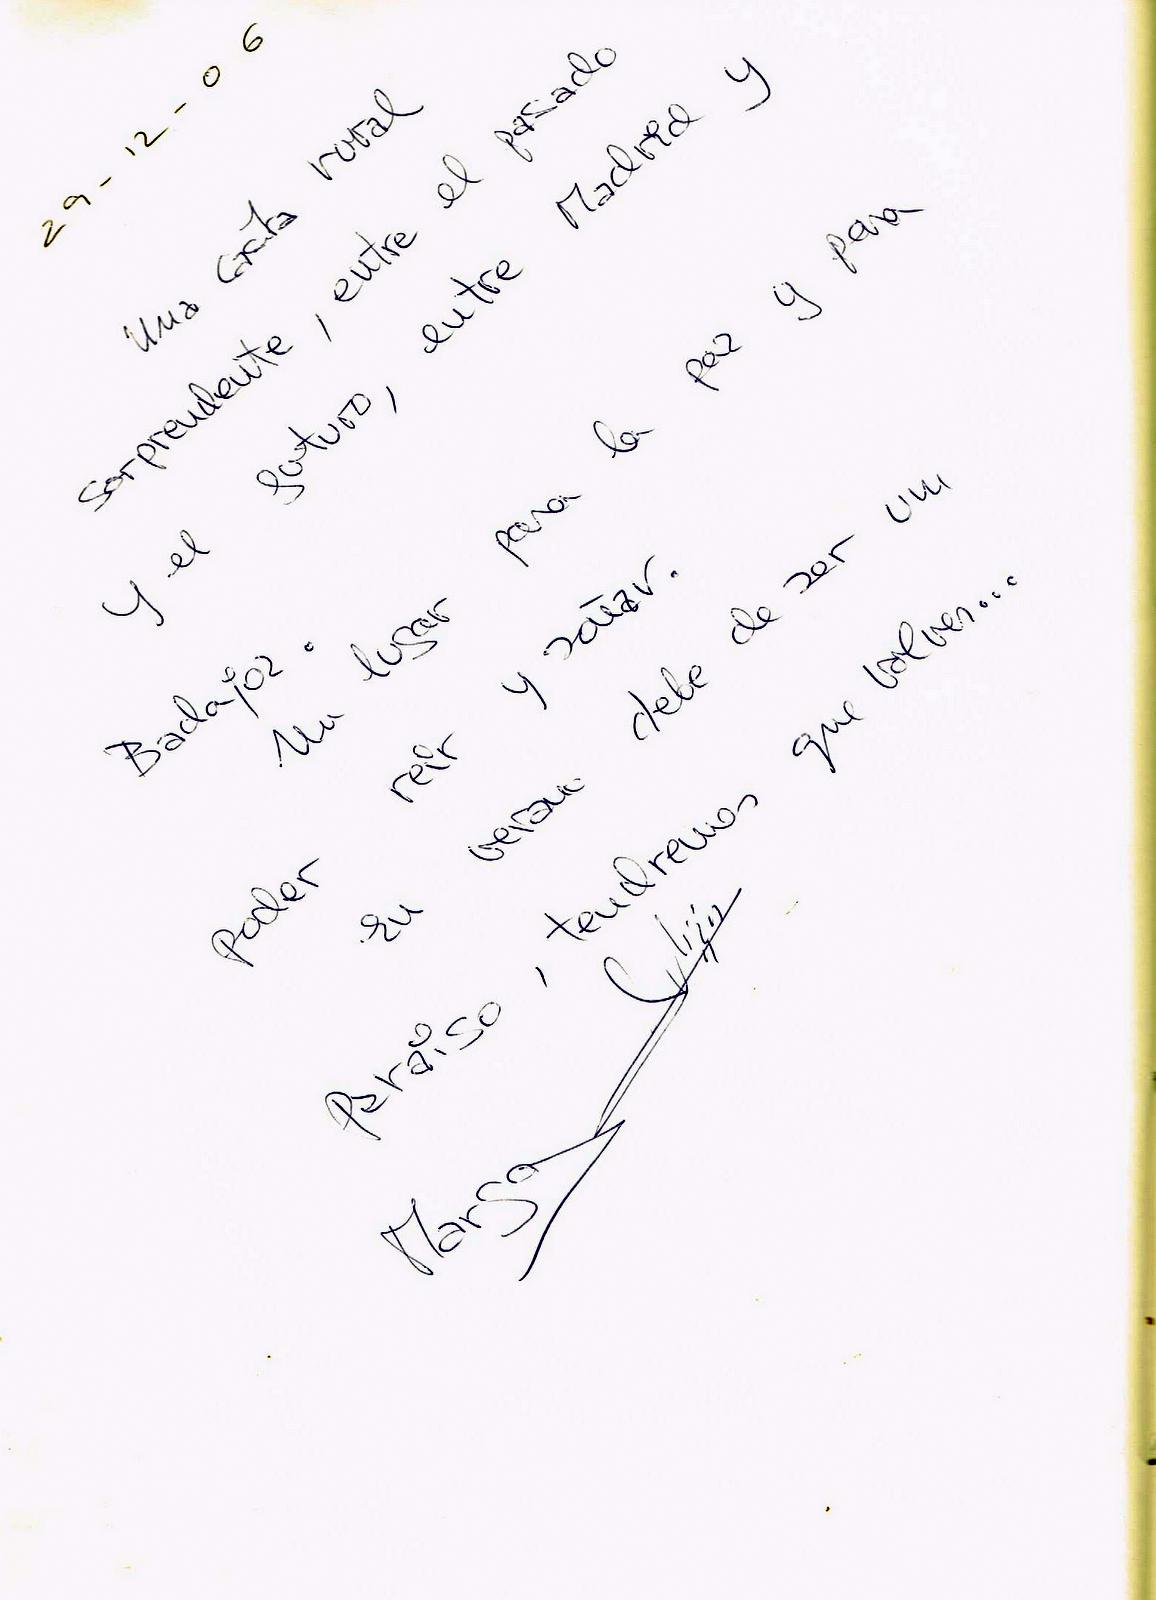 29-12-06
Una casita rural
sorprendente, entre el pasado
y el futuro, entre Madrid y
Badajoz.
Un lugar para la paz y para
poder reir y soñar.
En verano debe de ser un
paraiso, tendremos que volver...
Marga